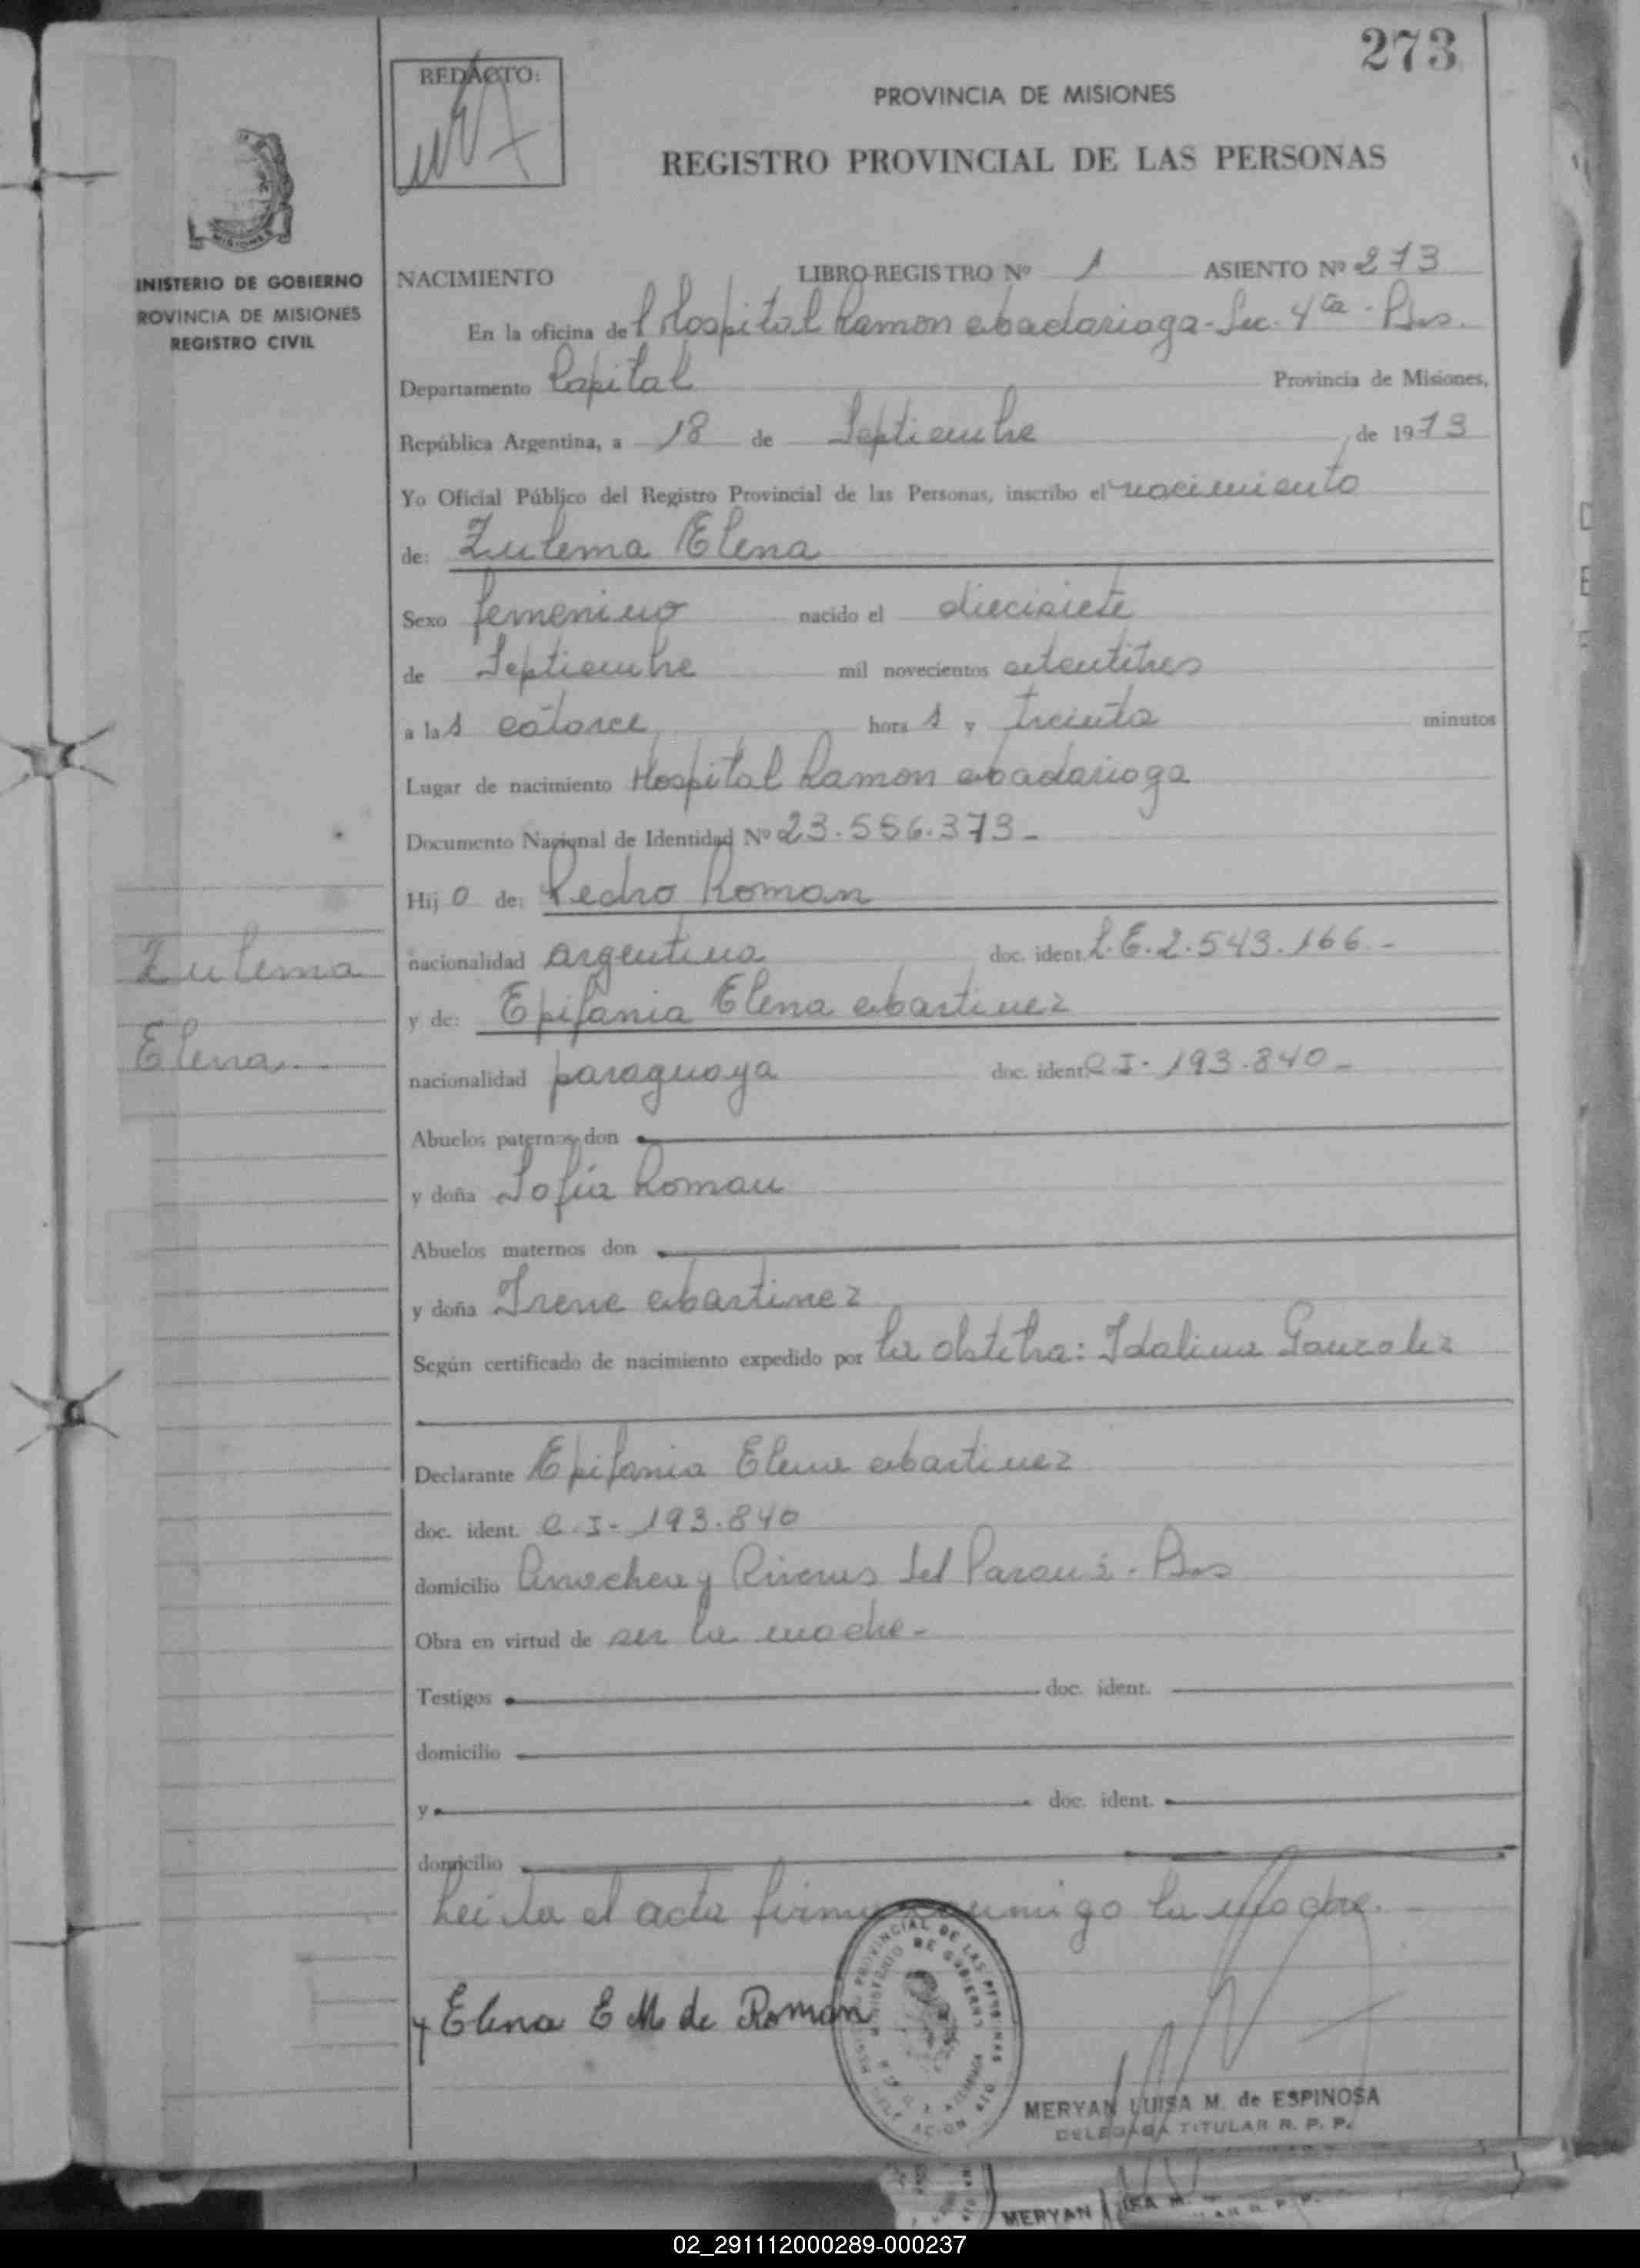 273
REDACTO:
PROVINCIA DE MISIONES
REGISTRO PROVINCIAL DE LAS PERSONAS
INISTERIO DE GOBIERNO
ROVINCIA DE MISIONES
REGISTRO CIVIL
NACIMIENTO LIBRO-REGISTRO Nº 1 ASIENTO Nº 273
En la oficina del Hospital Ramon Madariaga - Sec. 4ta - Pdas.
Departamento Capital Provincia de Misiones,
República Argentina, a 18 de Septiembre de 1973
Yo Oficial Público del Registro Provincial de las Personas, inscribo el nacimiento
de: Zulema Elena
Sexo femenino nacido el diecisiete
de Septiembre mil novecientos setentitres
a las catorce horas y treinta minutos
Lugar de nacimiento Hospital Ramon Madariaga
Documento Nacional de Identidad Nº 23.556.373-
Hijo de: Pedro Roman
nacionalidad argentina doc. ident. L.E. 2.543.166.-
y de: Epifania Elena Martinez
nacionalidad paraguaya doc. ident. C.I- 193.840-
Zulema
Elena
Abuelos paternos don
y doña Sofia Roman
Abuelos maternos don
y doña Irene Martinez
Según certificado de nacimiento expedido por la obstetra: Idalina Gonzalez
Declarante Epifania Elena Martinez
doc. ident. C.I- 193.840
domicilio y Riveras del Paraná - Pdas
Obra en virtud de ser la madre-
Testigos doc. ident.
domicilio
y doc. ident.
domicilio
Leida el acta firma conmigo la Madre.-
Elena E M de Roman
MERYAN LUISA M. de ESPINOSA
DELEGADA TITULAR R. P. P.
MERYAN
02_291112000289-000237